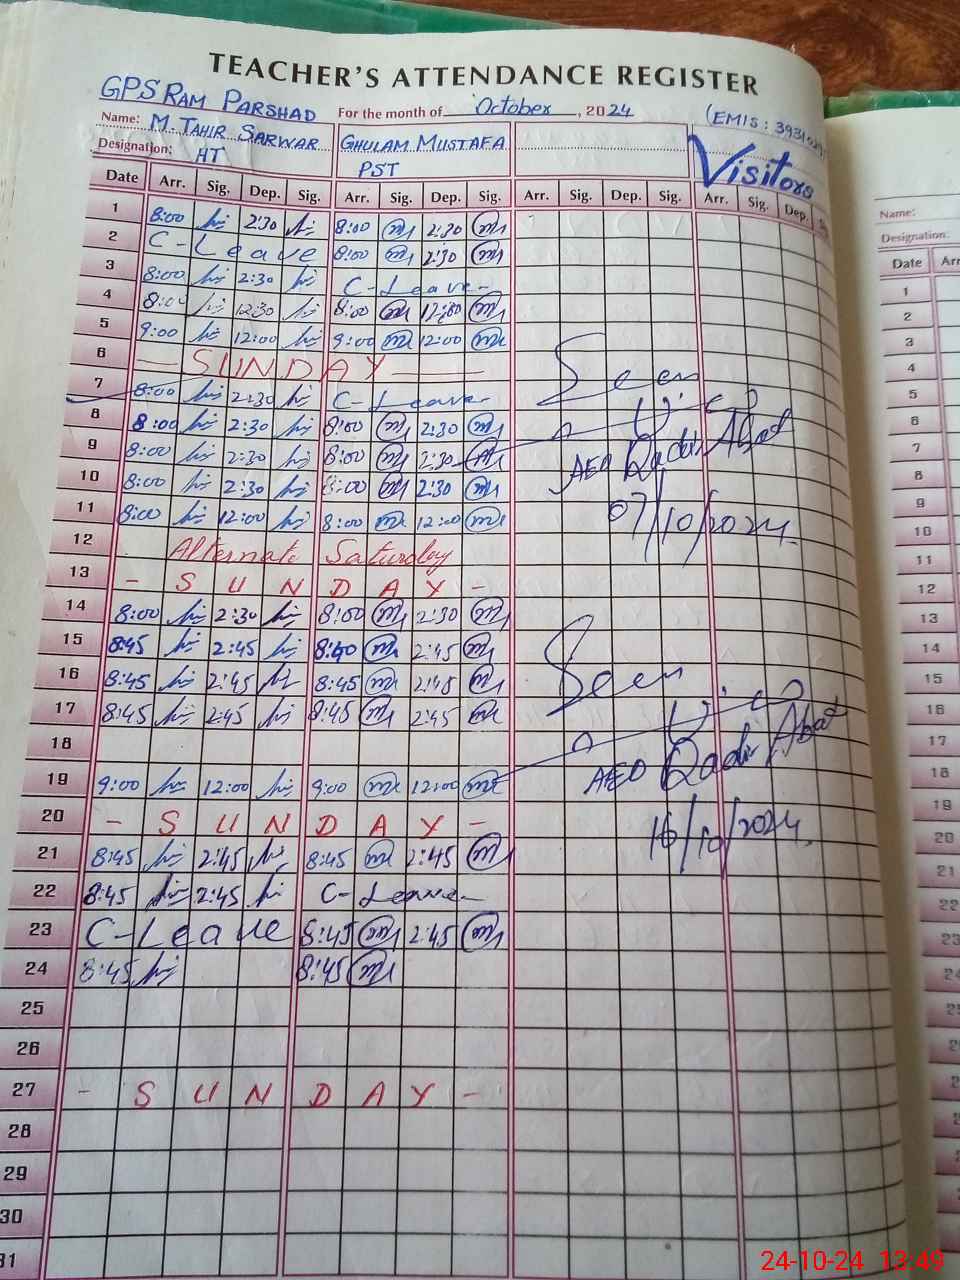 TEACHER'S ATTENDANCE REGISTER
GPS RAM PARSHAD For the month of October, 2024
Name: M. TAHIR SARWAR GHULAM MUSTAFA (EMIS:
Designation: HT PST Visitors
Date Arr. Sig. Dep. Sig. Arr. Sig. Dep. Sig. Arr. Sig. Dep. Sig. Arr. Sig. Dep.
1 8:00 2:30 8:00 2:30
2 C-Leave 8:00 2:30
3 8:00 2:30 C-Leave
4 8:00 12:30 8:00
5 9:00 12:00 9:00 12:00
6 - SUNDAY - Seen
7 8:00 2:30 C-Leave
8 8:00 2:30 8:00 2:30
9 8:00 2:30 8:00 2:30 AEO Qadir Abad
10 8:00 2:30 8:00 2:30
11 8:00 12:00 8:00 12:00 07/10/2024
12 Alternate Saturday
13 - SUNDAY -
14 8:00 2:30 8:00 2:30
15 8:45 2:45 8:40 2:45
16 8:45 2:45 8:45 2:45 Seen
17 8:45 2:45 8:45 2:45
18
19 9:00 12:00 9:00 12:00 AEO Qadir Abad
20 - SUNDAY -
21 8:45 2:45 8:45 2:45 16/10/2024
22 8:45 2:45 C-Leave
23 C-Leave 8:45 2:45
24 8:45 8:45
25
26
27 - SUNDAY -
28
29
30
31
Name:
Designation:
Date
1
2
3
4
5
6
7
8
9
10
11
12
13
14
15
16
17
18
19
20
21
22
23
24-10-24 13:49